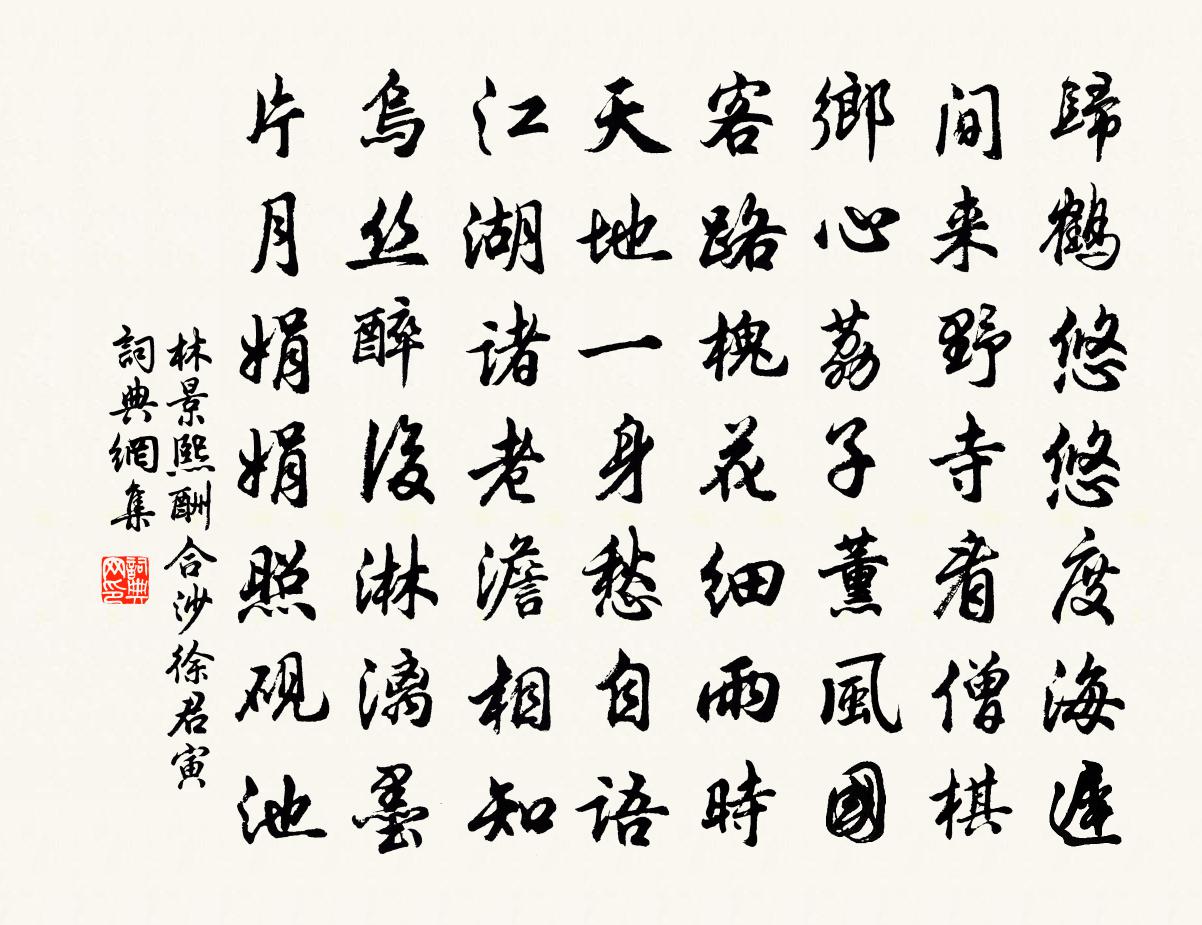 歸鶴悠悠度海遲
间来野寺看僧棋
鄉心荔子薰風國
客路槐花細雨時
天地一身愁自語
江湖諸老澹相知
烏丝醉後淋漓墨
片月娟娟照硯池
林景熙酬合沙徐君寅
詞典網集
詞典网印